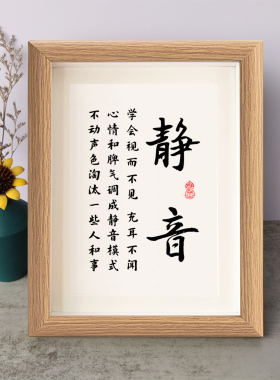 静音
学会视而不见 充耳不闻
心情和脾气调成静音模式
不动声色淘汰一些人和事